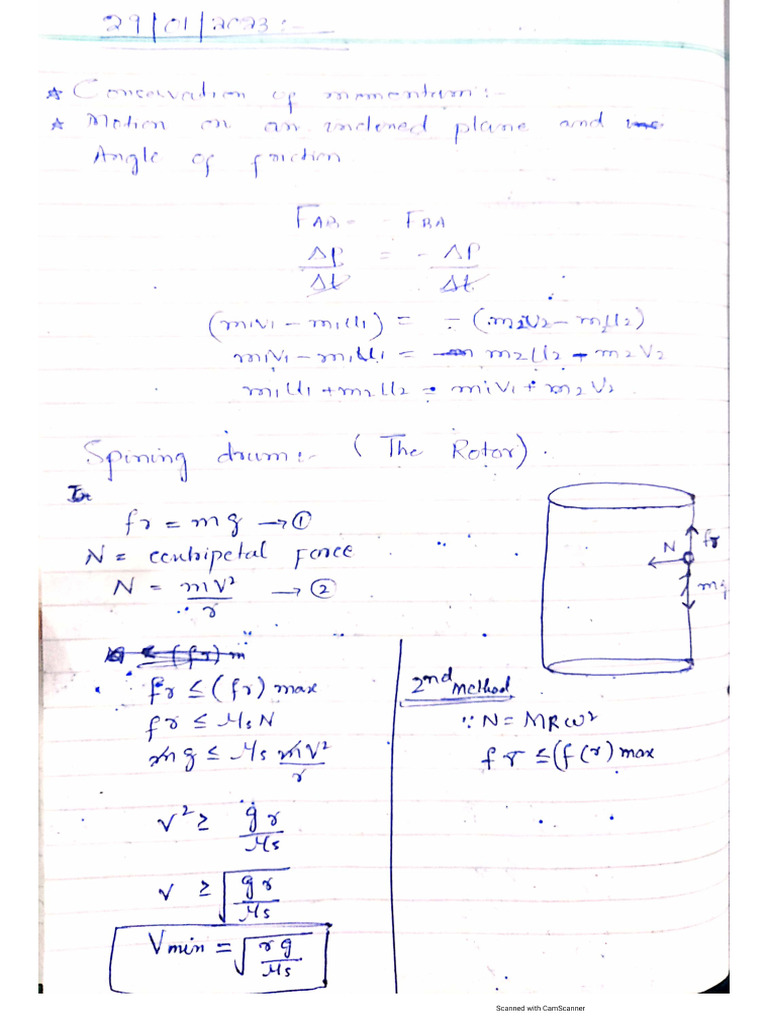 29/01/2023:-
* Conservation of momentum:-
* Motion on an inclened plane and
Angle of friction
FAB = - FBA
Δp/Δt = - Δp/Δt
(m1v1 - m1u1) = - (m2v2 - m2u2)
m1v1 - m1u1 = m2u2 - m2v2
m1u1 + m2u2 = m1v1 + m2v2
Spining drum:- (The Rotor).
fr = mg → ①
N = centripetal Force
N = mv²/r → ②
fr
N
mg
fr ≤ (fr) max
fr ≤ μs N
mg ≤ μs mv²/r
v² ≥ gr/μs
v ≥ √(gr/μs)
Vmin = √(rg/μs)
2nd method
∵ N = MRω²
fr ≤ (f(r) max
Scanned with CamScanner